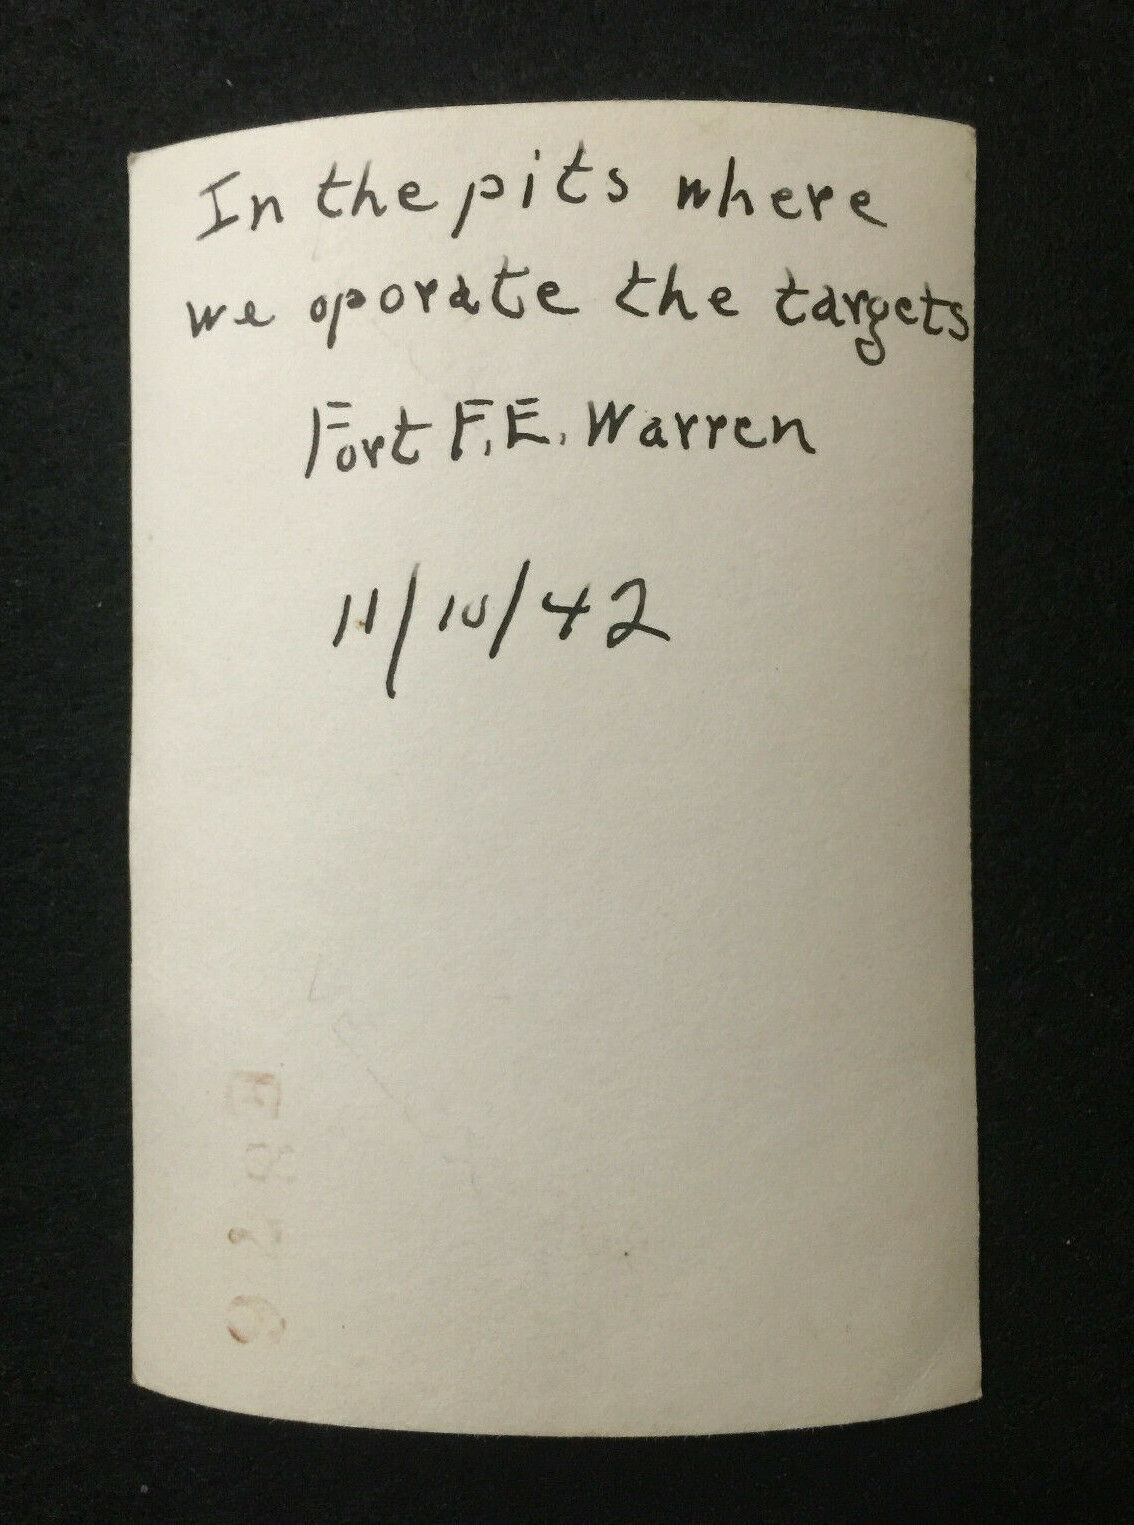 In the pits where
we oporate the targets
Fort F.E. Warren
11/10/42